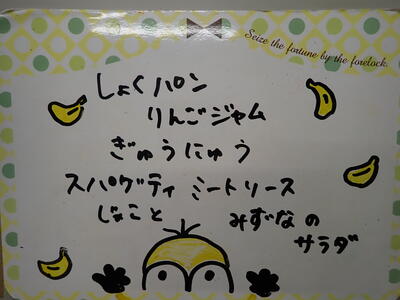 Seize the fortune by the forelock.
しょくパン
りんごジャム
ぎゅうにゅう
スパゲティ ミートソース
じゃこと みずなの
サラダ